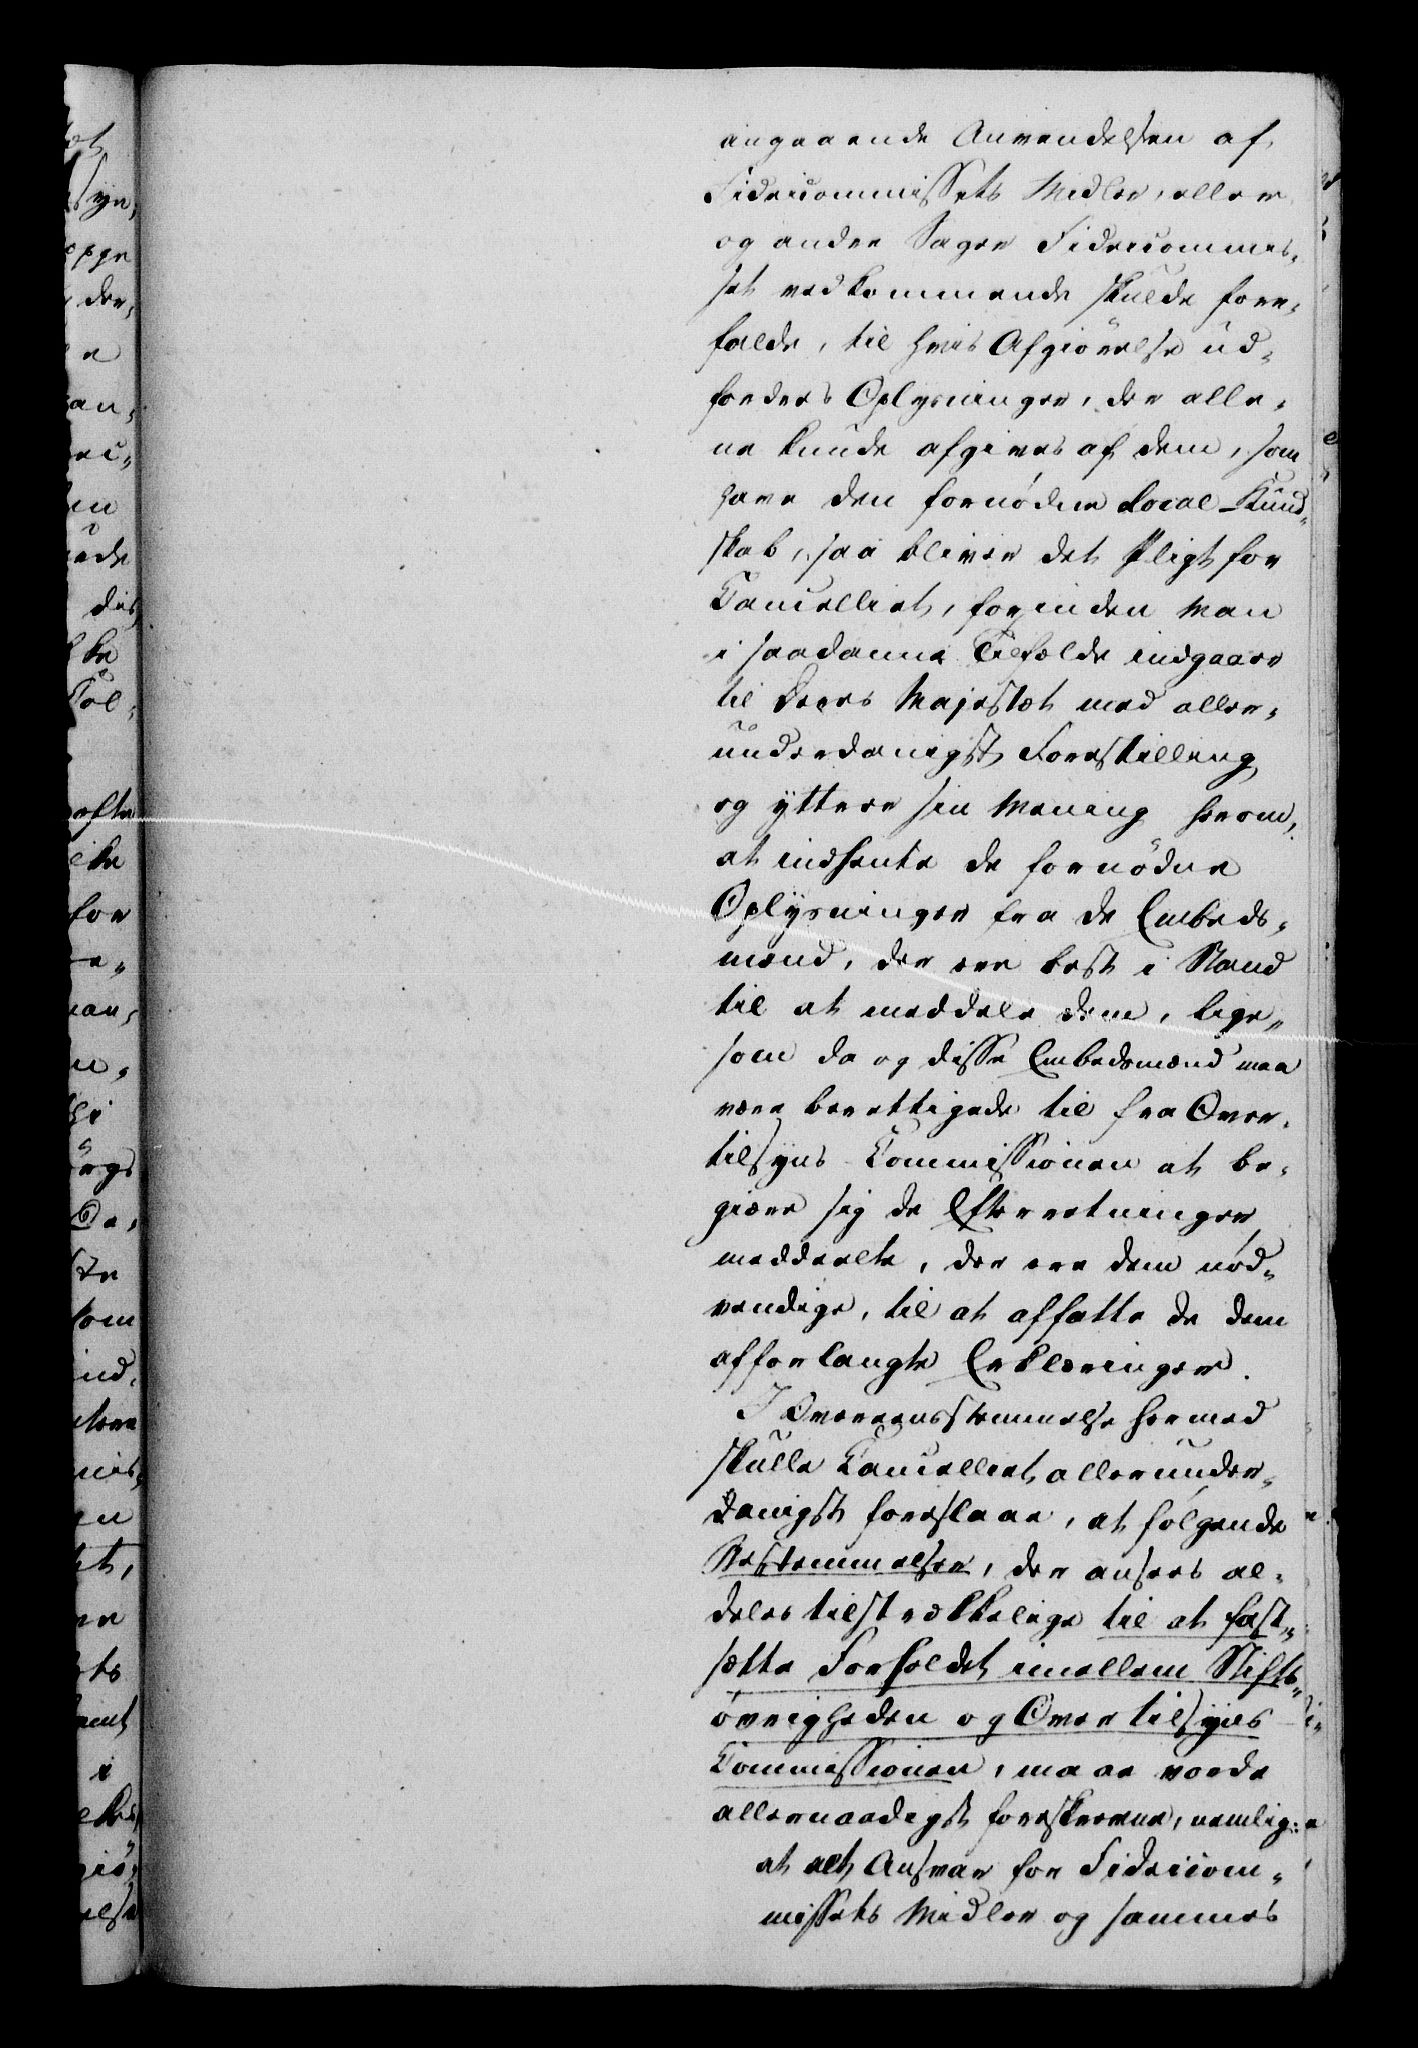 angaaende Anvendelsen af
Fideicommissets Midler, eller
og andre Sager Fideicommis,
set vedkommende skulde fore,
falde, til hvis Afgiörelse ud,
fordres Oplysninger, der alle,
ne kunde afgives af dem, som
have den fornødne Local-Kund,
skab, saa bliver det Pligt for
Cancelliet, forinden Man
i saadanne Tilfælde indgaaer
til Deres Majestæt med aller,
underdanigst Forestilling
og yttrer sin Mening herom,
at indhente de fornödne
Oplysninger fra de Embeds,
mænd, der ere best i Stand
til at meddele dem, lige,
som da og disse Embedsmænd maa
være berettigede til fra Over,
tilsyns Commissionen at be,
giære sig de Efterretninger
meddeelte, der ere dem nød,
vendige, til at affatte de dem
afforlangte Erklæringer.
I Overeensstemmelse hermed
skulle Cancelliet allerunder,
danigst foreslaae, at følgende
Bestemmelser, der ansees al,
deles tilstrækkelige til at fast,
sætte Forholdet imellem Stifts,
øvrigheden og Overtilsyns
Commissionen, maae vorde
allernaadigst foreskrevne, nemlig:
at alt Ansvar for Fideicom,
missets Midler og sammes